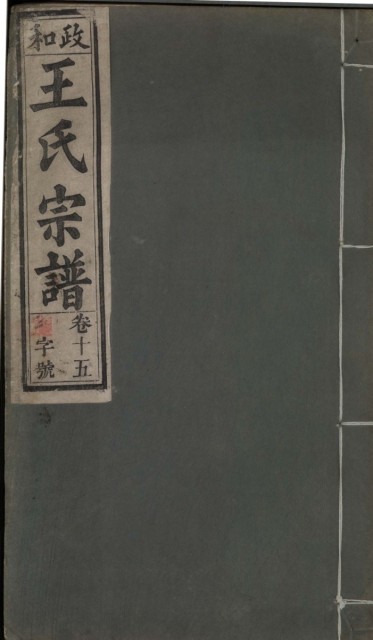 政和
王氏宗譜
卷十五
字號